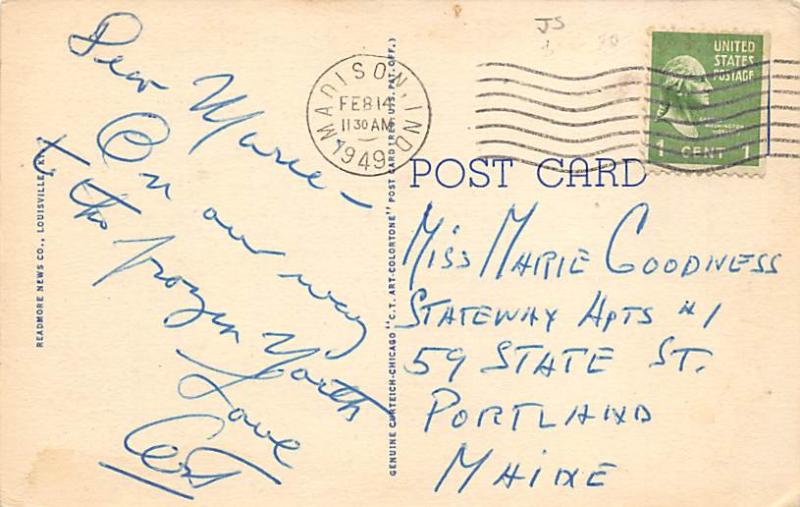 Dear Marie –
On our way
to the frozen North
Love
JS
MADISON, IND.
FEB 14
11 30 AM
1949
UNITED
STATES
POSTAGE
1 CENT 1
POST CARD
MISS MARIE GOODNESS
STATEWAY APTS #1
59 STATE ST.
PORTLAND
MAINE
READMORE NEWS CO., LOUISVILLE, KY.
GENUINE CURTEICH-CHICAGO "C. T. ART-COLORTONE" POST CARD (REG. U.S. PAT. OFF.)